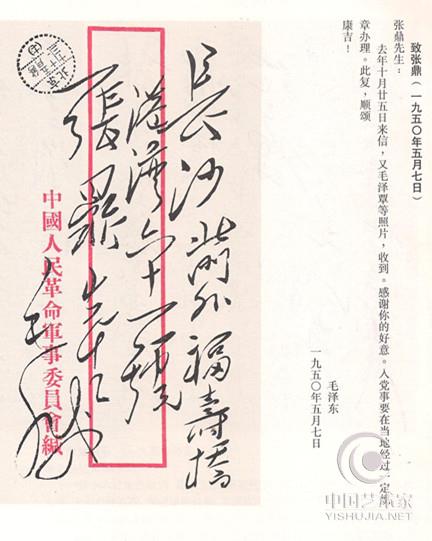 致张鼎（一九五〇年五月七日）
张鼎先生：
去年十月廿五日来信，又毛泽覃等照片，收到。感谢你的好意。入党事要在当地经过一定
章办理。此复，顺颂
康吉！
毛泽东
一九五〇年五月七日
長沙 外福壽橋
六十一號
張鼎先生
中國人民革命軍事委員會緘
北京
中国艺术家
YISHUJIA.NET